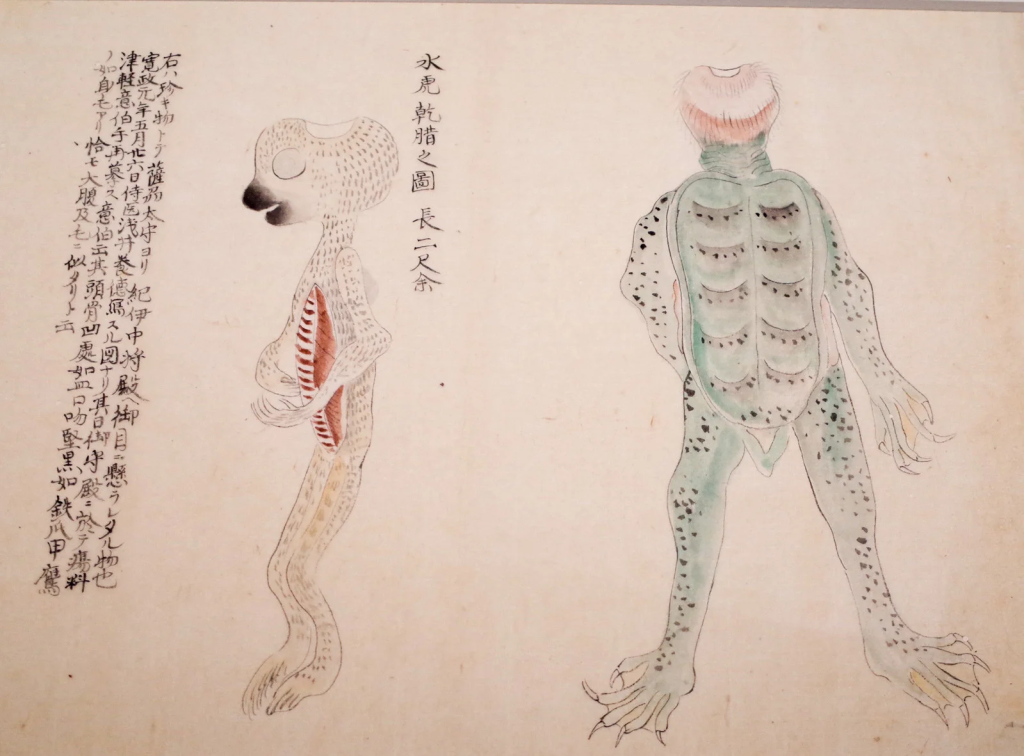 水虎乾腊之圖 長二尺余
右ハ珍キ物トテ薩刕太守ヨリ紀伊中将殿ヘ御目ニ懸ラレタル物也
寛政元年五月廿六日侍医浅井養徳寫スル図ナリ其日御守殿ニ於テ瘍料
津軽意伯手再摹ス意伯云其頭骨凹處如皿口吻堅黒如鉄爪甲鷹
ノ如身毛アリ恰モ大腿及毛ニ似タリト云